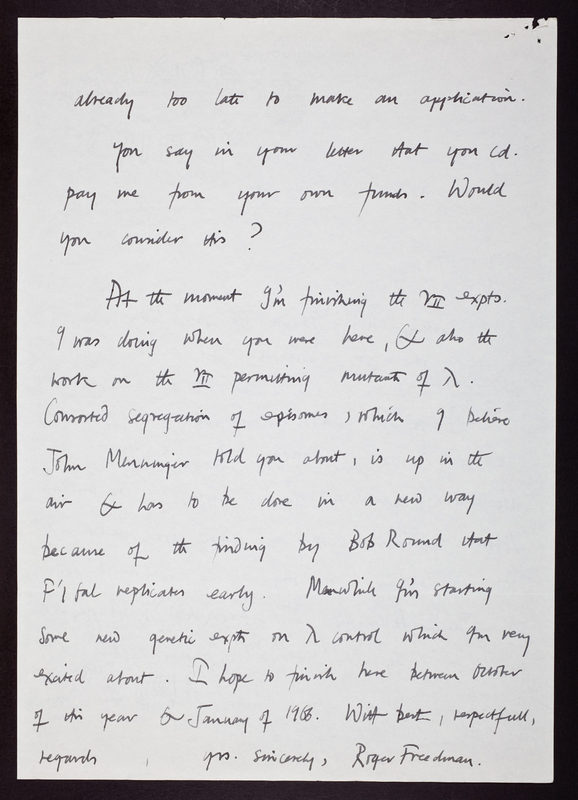 already too late to make an application.
You say in your letter that you cd.
pay me from your own funds. Would
you consider this?
At the moment I'm finishing the rII expts.
I was doing when you were here, & also the
work on the rII permitting mutants of λ.
Consorted segregation of episomes, which I believe
John Menninger told you about, is up in the
air & has to be done in a new way
because of the finding by Bob Round that
F'1 gal replicates early. Meanwhile I'm starting
some new genetic expts on λ control which I'm very
excited about. I hope to finish here between October
of this year & January of 1968. With best, respectfull,
regards, yrs. sincerely, Roger Freedman.